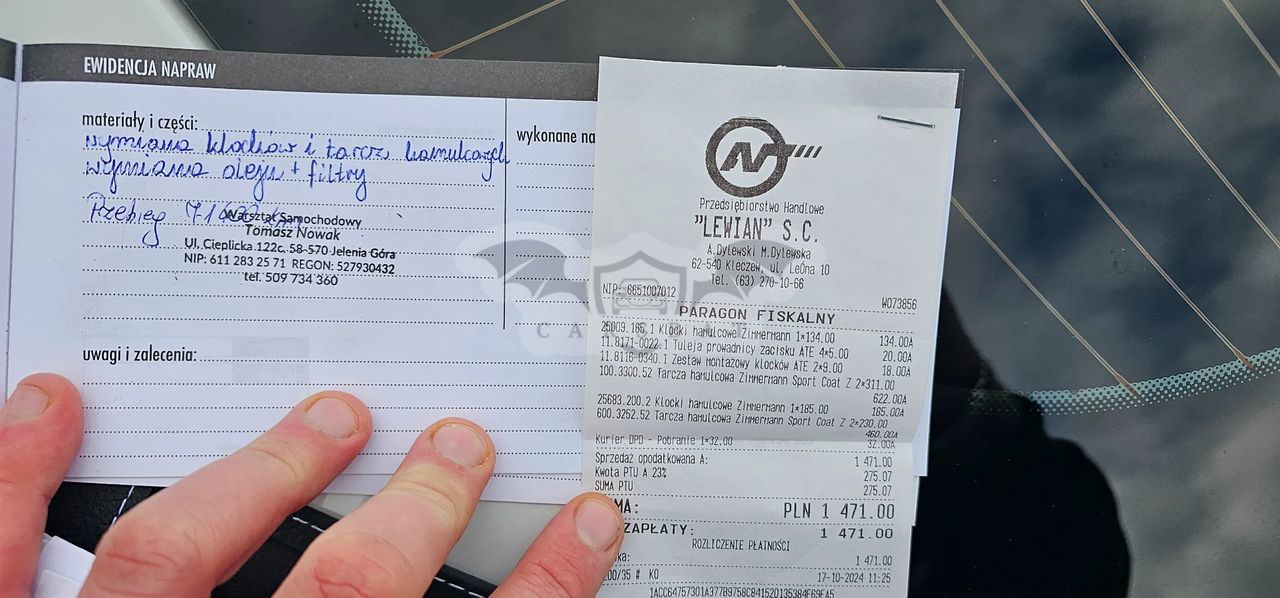 EWIDENCJA NAPRAW
materiały i części:
wymiana klocków i tarcz hamulcowych
wymiana oleju + filtry
Przebieg
Warsztat Samochodowy
Tomasz Nowak
Ul. Cieplicka 122c. 58-570 Jelenia Góra
NIP: 611 283 25 71 REGON: 527930432
tel. 509 734 360
uwagi i zalecenia:
wykonane na
Przedsiębiorstwo Handlowe
"LEWIAN" S.C.
A.Dylewski M.Dylewska
62-540 Kleczew, ul. LeOna 10
Tel. (63) 270-10-66
NIP: 6651007012
WO73856
PARAGON FISKALNY
25009.165.1 Klocki hamulcowe Zimmermann 1*134.00 134.00A
11.8171-0022.1 Tuleja prowadnicy zacisku ATE 4*5.00 20.00A
11.8116-0340.1 Zestaw montażowy klocków ATE 2*9.00 18.00A
100.3300.52 Tarcza hamulcowa Zimmermann Sport Coat Z 2*311.00
622.00A
25683.200.2 Klocki hamulcowe Zimmermann 1*185.00 185.00A
600.3252.52 Tarcza hamulcowa Zimmermann Sport Coat Z 2*230.00
460.00A
Kurier DPD - Pobranie 1*32.00 32.00A
Sprzedaż opodatkowana A: 1 471.00
Kwota PTU A 23% 275.07
SUMA PTU 275.07
MA: PLN 1 471.00
ZAPŁATY: 1 471.00
ROZLICZENIE PŁATNOŚCI
1 471.00
00/35 # KO 17-10-2024 11:25